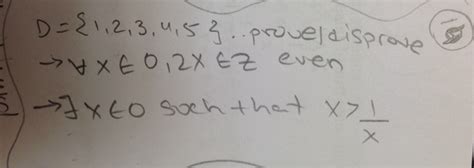 D = {1,2,3,4,5} .. prove/disprove
→ ∀ x ∈ D, 2x ∈ Z even
→ ∃ x ∈ D such that x > 1/x